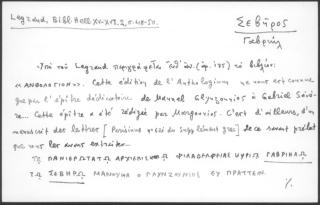 Legrand, Bibl. Hell. XV-XVI s. 2, σ. 48-50.
Σεβῆρος
Γαβριήλ
Ὑπὸ τοῦ Legrand περιγράφεται ὑπ' ἀρ. (ἀρ. 175) τὸ βιβλίον:
«ΑΝΘΟΛΟΓΙΟΝ». Cette édition de l'Anthologium ne nous est connue
que par l'épître dédicatoire de Manuel Glynzounios à Gabriel Sévè-
re... Cette épître a été rédigée par Margounios. C'est d'ailleurs, d'un
manuscrit des lettres [Parisinus du Supplément grec] de ce savant prélat
que nous les avons extraite.
ΤΩ ΠΑΝΙΕΡΩΤΑΤΩ ΑΡΧΙΕΠΙΣΚΟΠΩ ΦΙΛΑΔΕΛΦΕΙΑΣ ΚΥΡΙΩ ΓΑΒΡΙΗΛΩ
ΤΩ ΣΕΒΗΡΩ ΜΑΝΟΥΗΛ Ο ΓΛΥΝΖΟΥΝΙΟΣ ΕΥ ΠΡΑΤΤΕΙΝ.